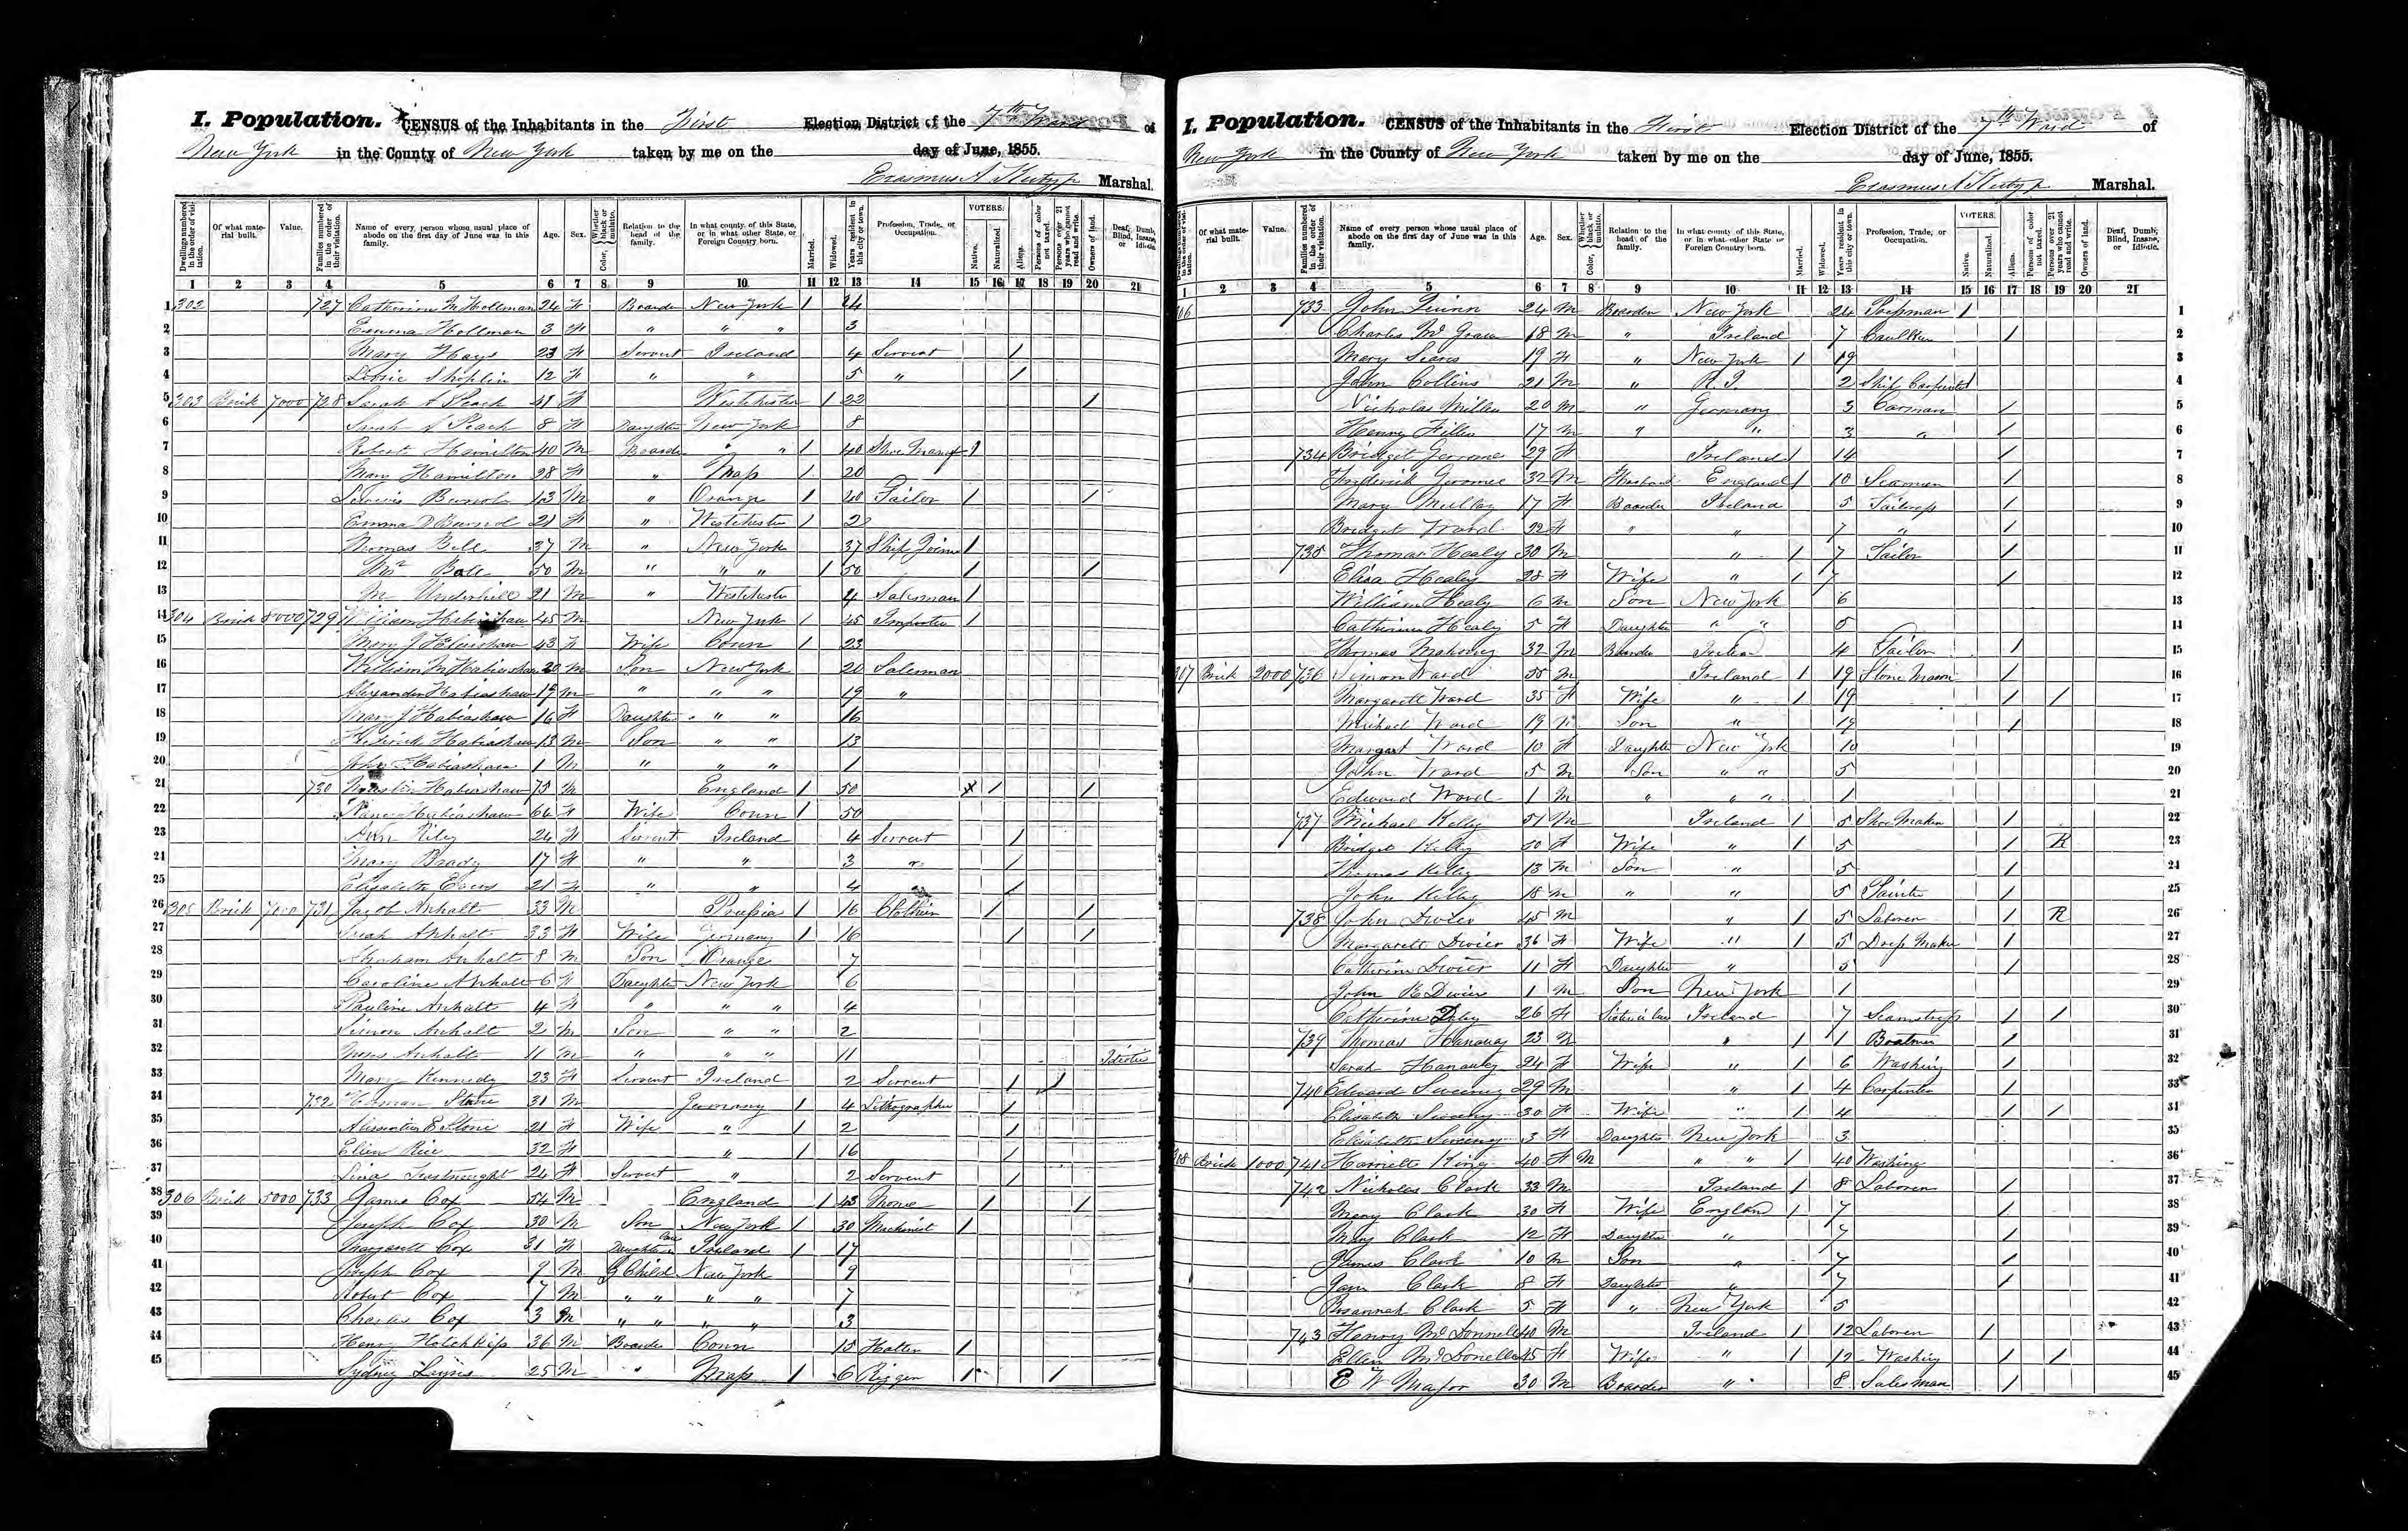 I. Population. CENSUS of the Inhabitants in the First Election District of the 7th Ward of
New York in the County of New York taken by me on the day of June, 1855.
Erasmus A Marshal.
Dwellings numbered in the order of visitation. Of what material built. Value. Families numbered in the order of their visitation. Name of every person whose usual place of abode on the first day of June was in this family. Age. Sex. Color, Whether black or mulatto. Relation to the head of the family. In what county of this State, or in what other State or Foreign Country born. Married. Widowed. Years resident in this city or town. Profession, Trade, or Occupation. VOTERS. Native. Naturalized. Aliens. Persons of color not taxed. Persons over 21 years who cannot read and write. Owners of land. Deaf, Dumb, Blind, Insane, or Idiotic.
1 2 3 4 5 6 7 8 9 10 11 12 13 14 15 16 17 18 19 20 21
1 302 727 Catherine M Hollman 24 F Boarder New York / 24
2 Emma Hollman 3 F " " " 3
3 Mary Hays 23 F Servent Ireland 4 Servent /
4 Shoplin 12 F " " 5 " /
5 303 Brick 7000 728 Sarah A Peack 41 F Westchester / 22 /
6 Sarah A Peack 8 F Daughter New York 8
7 Robert Hamilton 40 M Boarder " " / 40 Shoe Manuf /
8 Mary Hamilton 28 F " Mass / 20
9 M " Orange / 20 Tailor / /
10 Emma D 21 F " Westchester / 2
11 Thomas Bell 37 M " New York 37 Ship Joiner /
12 50 M " " " / 50 / /
13 M Underhill 21 M " Westchester 4 Salesman /
14 304 Brick 8000 729 William Habinshaw 45 M New York / 45 Importer /
15 Mary J Habinshaw 43 F Wife Conn / 23
16 William M Habinshaw 20 M Son New York 20 Salesman
17 Alexander Habinshaw 19 M " " " 19 "
18 Mary J Habinshaw 16 F Daughter " " 16
19 Frederick Habinshaw 13 M Son " " 13
20 John Habinshaw 1 M " " " 1
21 730 Habinshaw 75 M England / 50 x / /
22 Nancy Habinshaw 64 F Wife Conn / 50
23 Ann Riley 24 F Servent Ireland 4 Servent /
24 Mary Brady 17 F " " 3 " /
25 Elizabeth 21 F " " 4 " /
26 305 Brick 7000 731 Jacob Anhalt 33 M Prussia / 16 Clothier / /
27 Sarah Anhalt 33 F Wife Germany / 16 / /
28 Abraham Anhalt 8 M Son Orange 7
29 Caroline Anhalt 6 F Daughter New York 6
30 Pauline Anhalt 4 F " " " 4
31 Simon Anhalt 2 M Son " " 2
32 Anhalt 11 M " " " 11 Idiotic
33 Mary Kennedy 23 F Servent Ireland 2 Servent / /
34 732 Herman Stone 31 M Germany / 4 Lithographer /
35 E Stone 21 F Wife " / 2 /
36 Ellen Rice 32 F " / 16 /
37 Lina 24 F Servent " 2 Servent /
38 306 Brick 5000 733 James Cox 54 M England / 43 None / /
39 Joseph Cox 30 M Son New York / 30 Machinist /
40 Margarett Cox 31 F Daughter in law Ireland / 17
41 Joseph Cox 9 M G Child New York 9
42 Robert Cox 7 M " " " " 7
43 Charles Cox 3 M " " " " 3
44 Henry Hotchkiss 36 M Boarder Conn 15 Hatter /
45 Sydney 25 M " Mass / 6 Rigger / /
I. Population. CENSUS of the Inhabitants in the First Election District of the 7th Ward of
New York in the County of New York taken by me on the day of June, 1855.
Erasmus A Marshal.
Dwellings numbered in the order of visitation. Of what material built. Value. Families numbered in the order of their visitation. Name of every person whose usual place of abode on the first day of June was in this family. Age. Sex. Color, Whether black or mulatto. Relation to the head of the family. In what county of this State, or in what other State or Foreign Country born. Married. Widowed. Years resident in this city or town. Profession, Trade, or Occupation. VOTERS. Native. Naturalized. Aliens. Persons of color not taxed. Persons over 21 years who cannot read and write. Owners of land. Deaf, Dumb, Blind, Insane, or Idiotic.
1 2 3 4 5 6 7 8 9 10 11 12 13 14 15 16 17 18 19 20 21
306 733 John Quinn 24 M Boarder New York 24 / 1
Charles McGraw 18 M " Ireland 7 Caulker / 2
Mary Sears 19 F " New York / 19 3
John Collins 21 M " R.I. 2 Ship Carpenter / 4
Nicholas Miller 20 M " Germany 3 Carman / 5
Henry 17 M " " 3 " / 6
734 Bridget Jerome 29 F Ireland / 14 / 7
Frederick Jerome 32 M Husband England / 10 Seaman / 8
Mary Mullay 17 F Boarder Ireland 5 Tailress / 9
Bridget Ward 22 F " " 7 " / 10
735 Thomas Healy 30 M " / 7 Tailor / 11
Eliza Healey 28 F Wife " / 7 / 12
William Healy 6 M Son New York 6 13
Catherine Healy 5 F Daughter " " 5 14
Thomas Mahoney 32 M Boarder Ireland 4 Tailor / 15
307 Brick 2000 736 Simon Ward 55 M Ireland / 19 Stone Mason / 16
Margarett Ward 35 F Wife " / 19 / / 17
Michael Ward 19 M Son " 19 / 18
Margaret Ward 10 F Daughter New York 10 19
John Ward 5 M Son " " 5 20
Edward Ward 1 M " " " 1 21
737 Michael Kelly 51 M Ireland / 5 Shoe Maker / 22
Bridget Kelly 50 F Wife " / 5 / R 23
Thomas Kelly 13 M Son " 5 / 24
John Kelly 18 M " " 5 Painter / 25
738 John Dwier 45 M " / 5 Laborer / R 26
Margarett Dwier 36 F Wife " / 5 Dress Maker / 27
Catherine Dwier 11 F Daughter " 5 / 28
John Dwier 1 M Son New York 1 29
Catherine Daley 26 F Sister in law Ireland 7 Seamstress / / 30
739 Thomas Hanaway 23 M " / 1 Boatman / 31
Sarah Hanaway 24 F Wife " / 6 Washing / 32
740 Edward Sweeney 29 M " / 4 Carpenter / 33
Elizabeth Sweeny 30 F Wife " / 4 / / 34
Elizabeth Sweeny 3 F Daughter New York 3 35
308 Brick 1000 741 Harriett King 40 F M " " / 40 Washing 36
742 Nicholas Clark 33 M Ireland / 8 Laborer / 37
Mary Clark 30 F Wife England / 7 / 38
Mary Clark 12 F Daughter " 7 / 39
James Clark 10 M Son " 7 / 40
Jane Clark 8 F Daughter " 7 / 41
Clark 5 F " New York 5 42
743 Henry McDonnell 40 M Ireland / 12 Laborer / 43
Ellen McDonell 45 F Wife " / 12 Washing / / 44
E W Major 30 M Boarder " 8 Salesman / 45